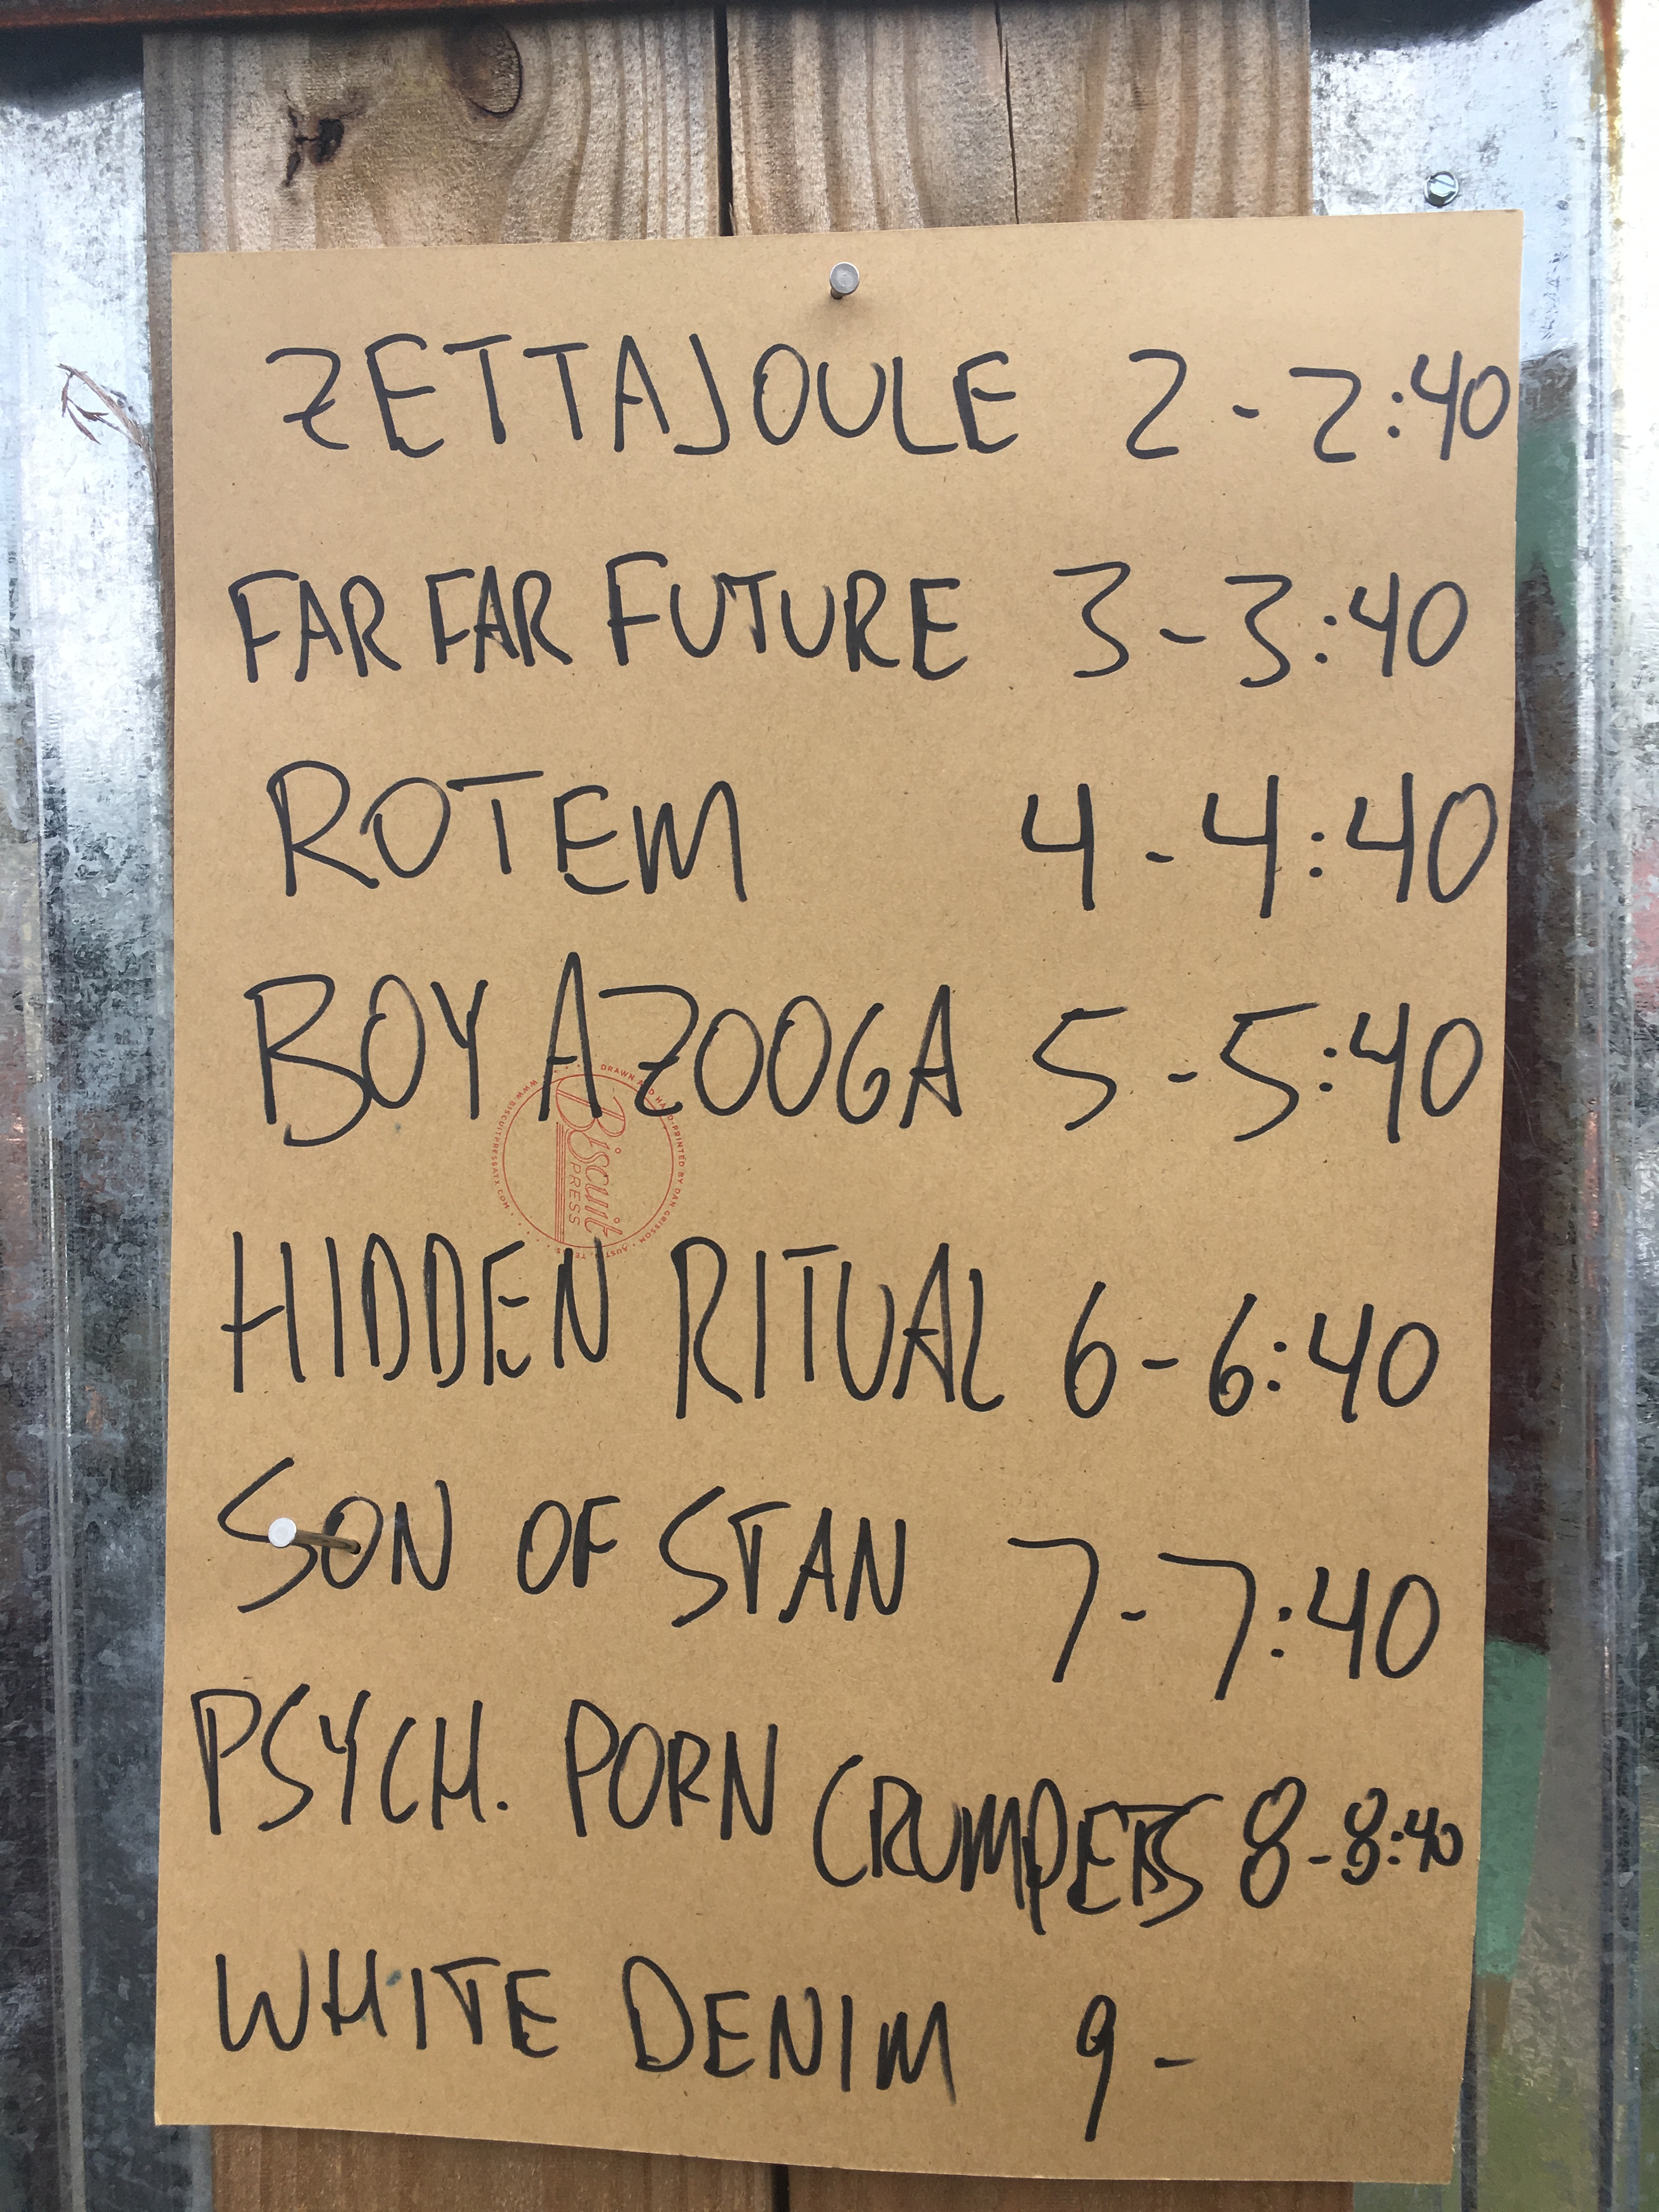 ZETTAJOULE 2-2:40
FAR FAR FUTURE 3-3:40
ROTEM 4-4:40
BOY AZOOGA 5-5:40
DRAWN AND HAND-PRINTED BY DAN GRISSOM · AUSTIN, TEXAS · WWW.BISCUITPRESSATX.COM
Biscuit
PRESS
HIDDEN RITUAL 6-6:40
SON OF STAN 7-7:40
PSYCH. PORN CRUMPETS 8-8:40
WHITE DENIM 9-